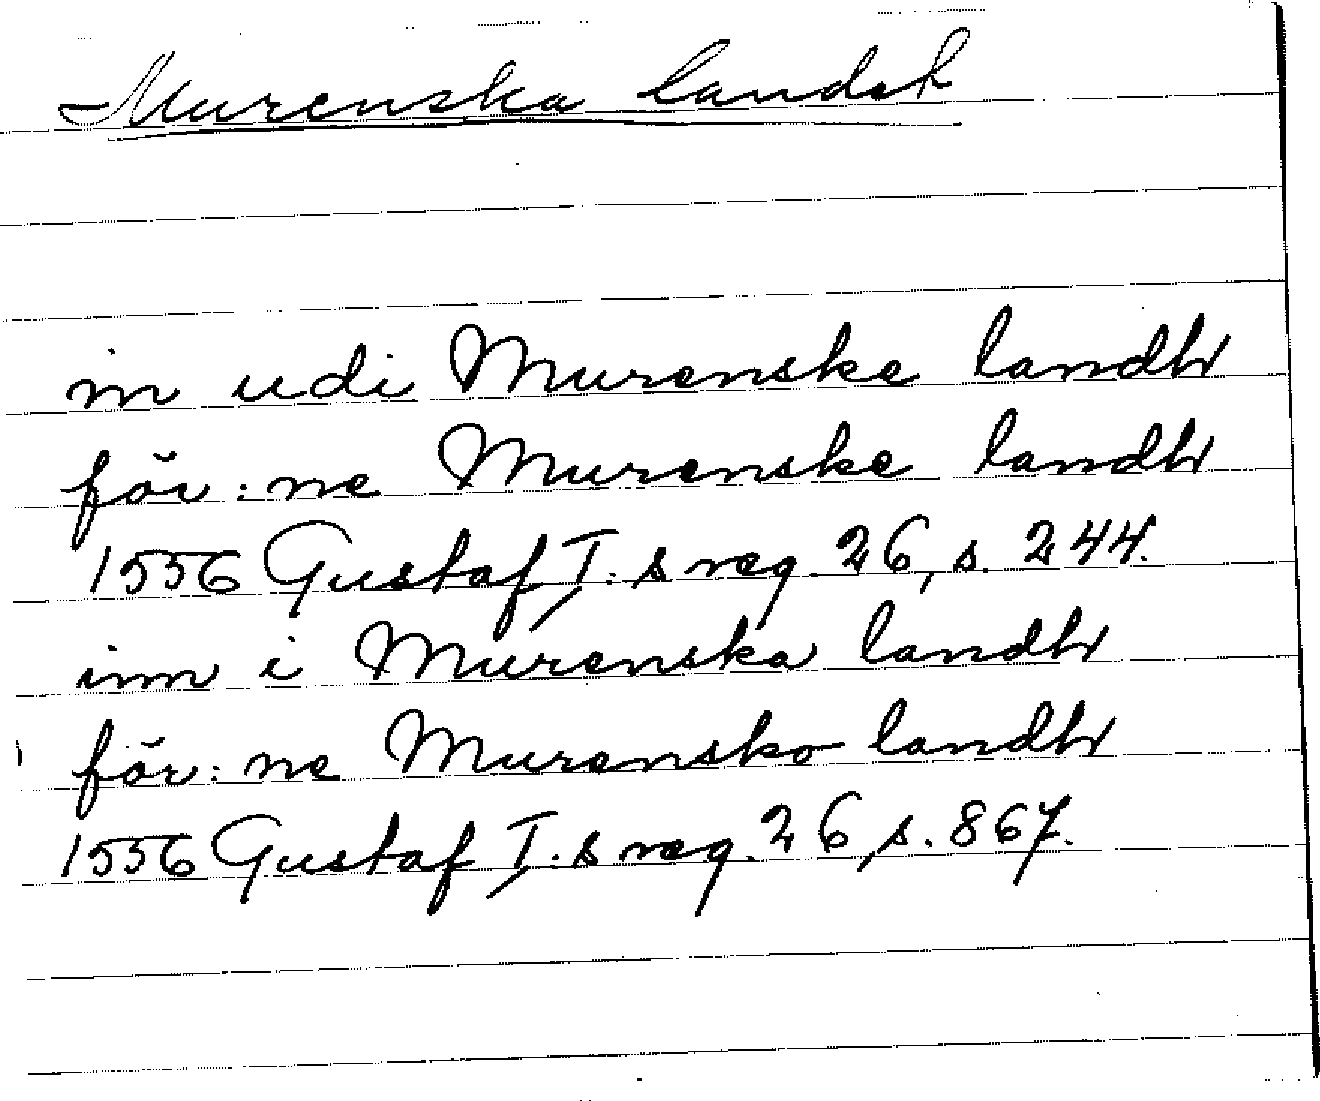 Murenska landet
in udi Murenske landh
för:ne Murenske landh
1556 Gustaf I:s reg. 26, s. 244.
inn i Murenska landh
för:ne Murensko landh
1556 Gustaf I:s reg. 26, s. 867.